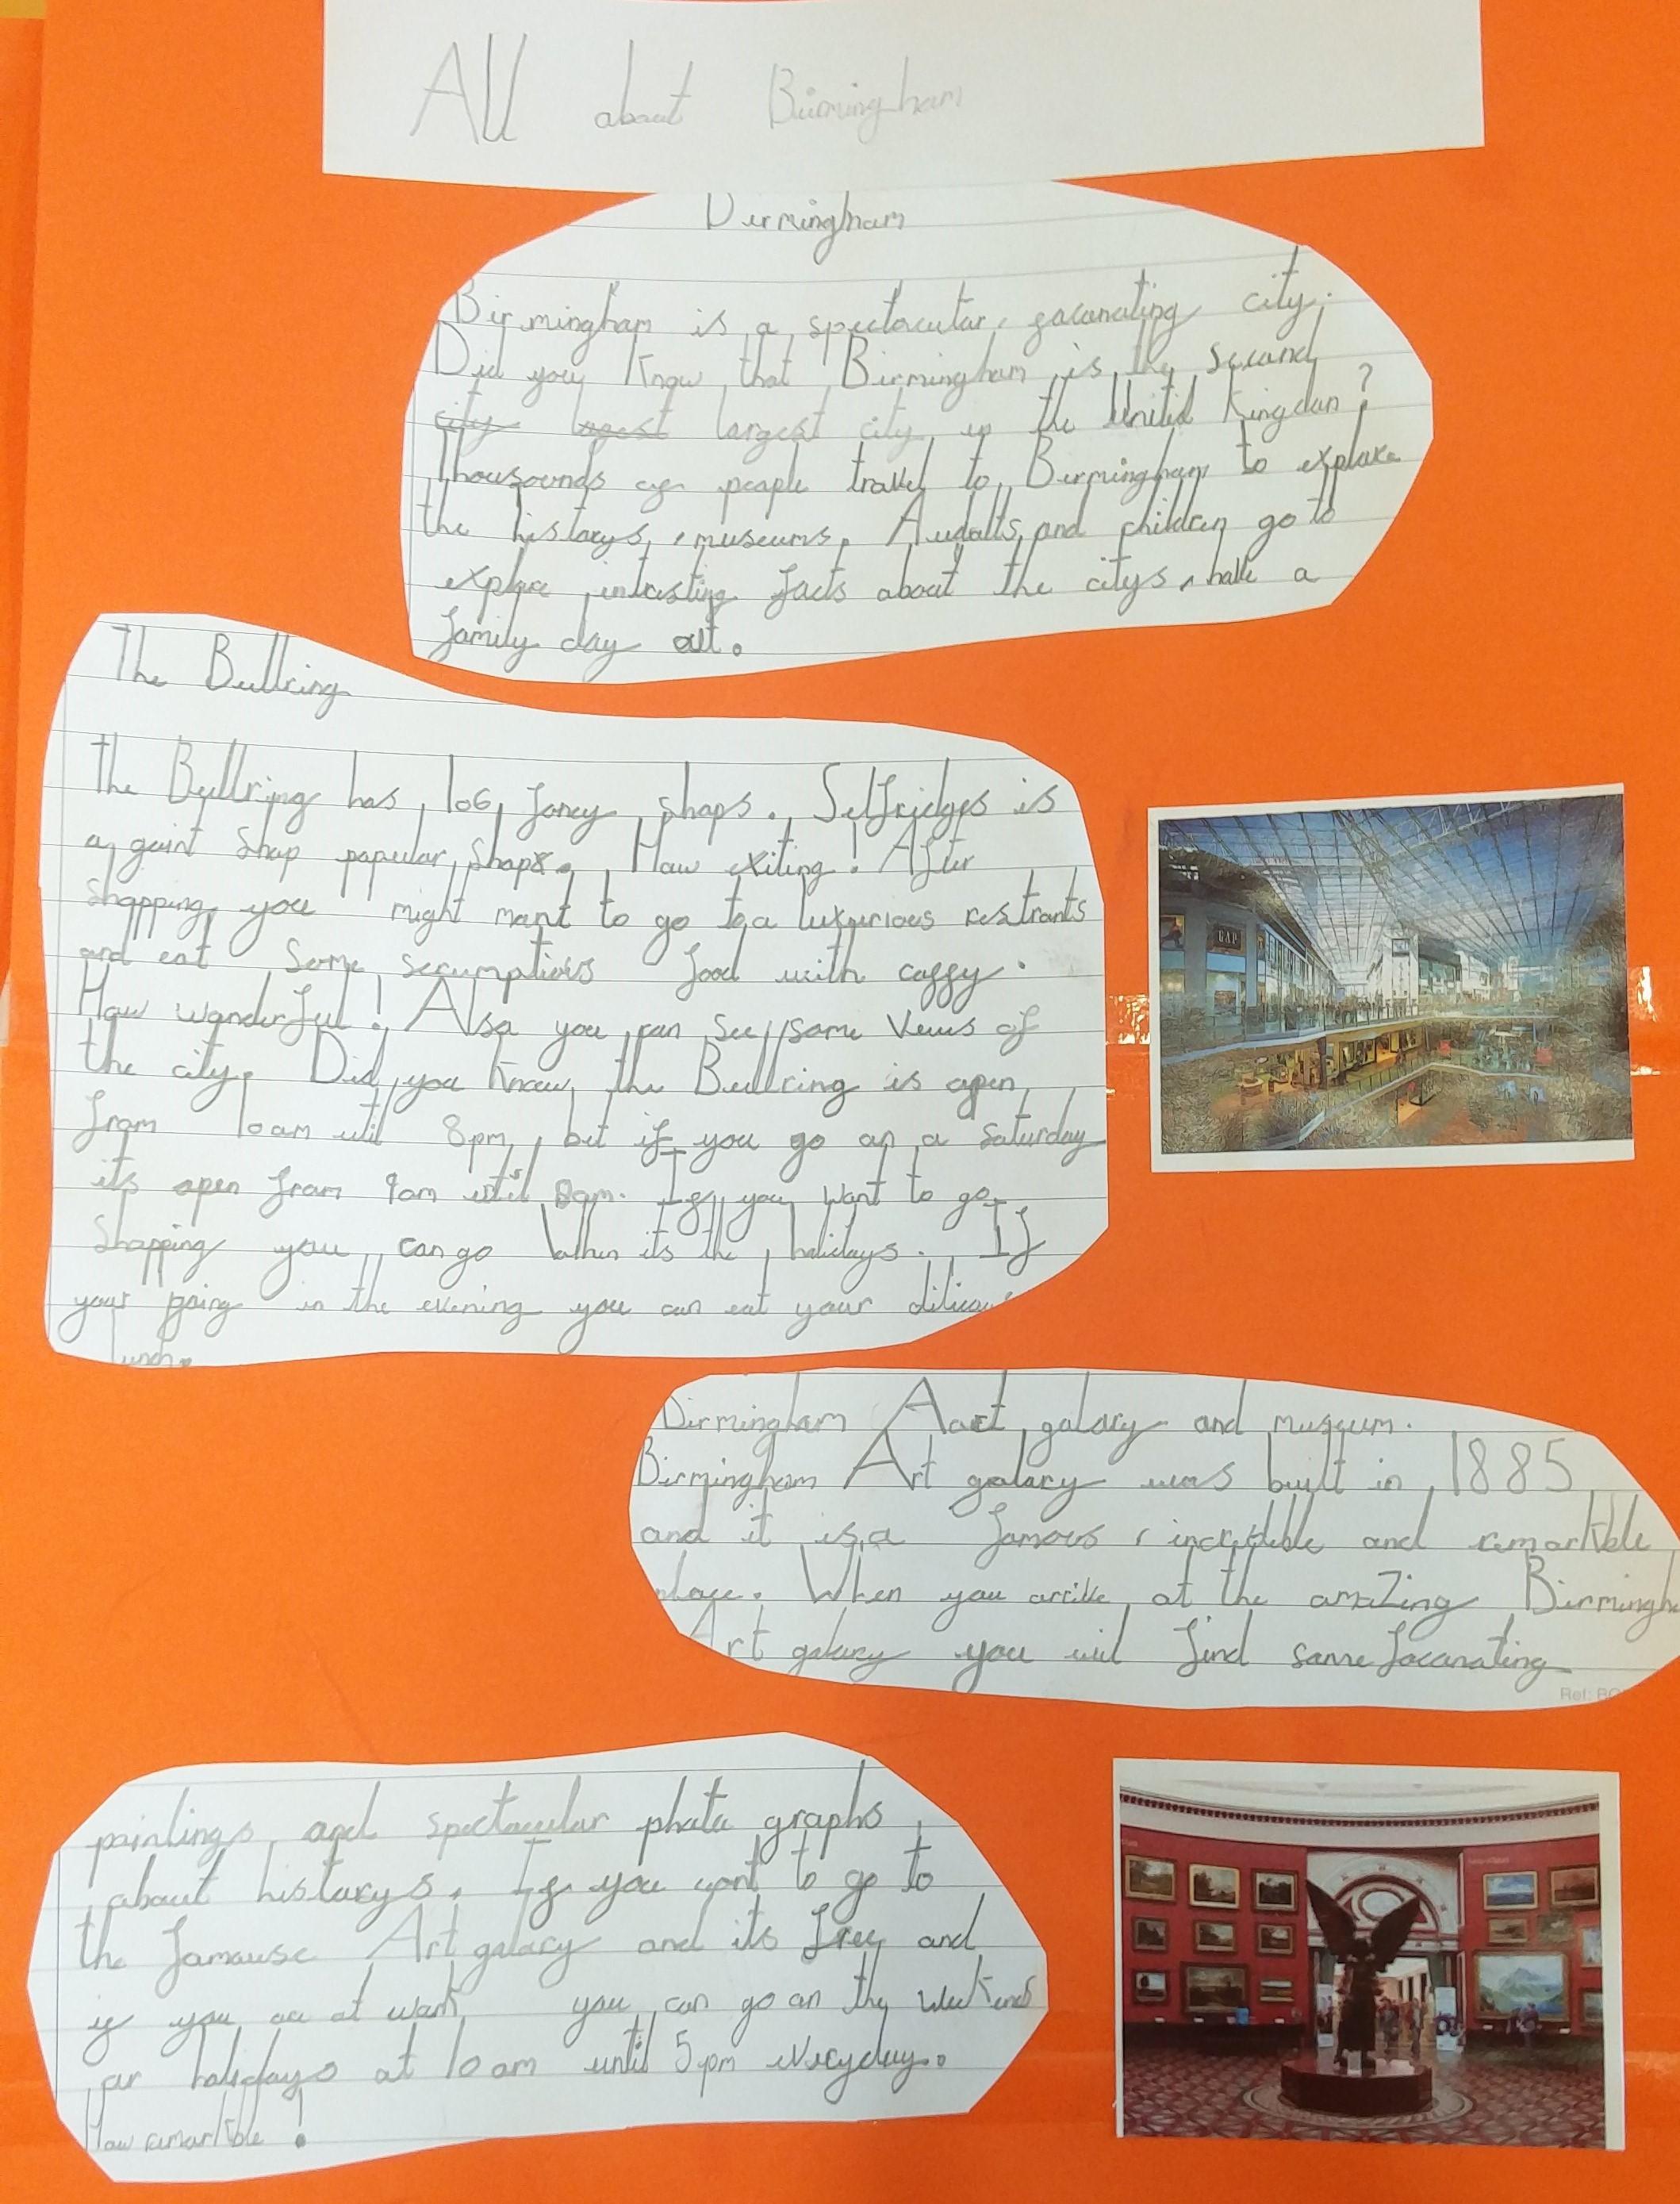 All about Birmingham
Birmingham
Birmingham is a spectacular, facanating city.
Did you know that Birmingham is the second
city lagest largest city in the United Kingdan?
Thousounds of people travel to Birmingham to explore
the historys, museums. Audalts and children go to
explore intresting facts about the citys, have a
family day out.
The Bullring
The Bullring has 106 foncy shops. Selfridges is
a gaint shop popular shop. How exiting! After
shopping you might want to go to a luxurious restrants
and eat some scrumptious food with coffy.
How wonderful! Also you can see some views of
the city. Did you know the Bullring is open
from 10am util 8pm, but if you go on a Saturday
its open from 9am until 8pm. If you want to go
Shopping you can go when its the holidays. If
your going in the evening you can eat your dilicous
lunch.
Birmingham Aart galary and museum.
Birmingham Art galary was built in 1885
and it is a famous, incredible and remarkble
place. When you arrive at the amazing Birmingha
Art galary you will find some facanating
Ref: BO
paintings and spectacular photo graphs
about historys. If you want to go to
the famouse Art galary and its free and
if you are at work you can go on the weekends
or holidays at 10am until 5pm everyday.
How remarkble!
GAP